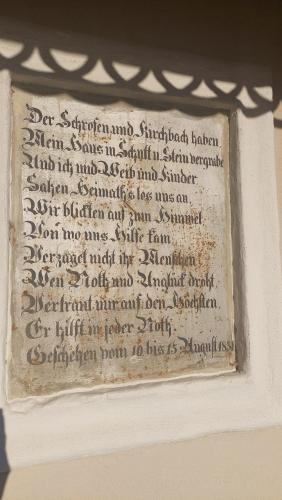 Der Schrofen und Kirchbach haben
Mein Haus in Schutt u. Stein vergrabe
Und ich und Weib und Kinder
Sahen Heimath's los uns an.
Wir blickten auf zum Himmel
Von wo uns Hilfe kam
Verzaget nicht ihr Menschen
Wen Noth und Unglück droht
Vertraut nur auf den Höchsten
Er hilft in jeder Noth.
Geschehen vom 10 bis 15 August